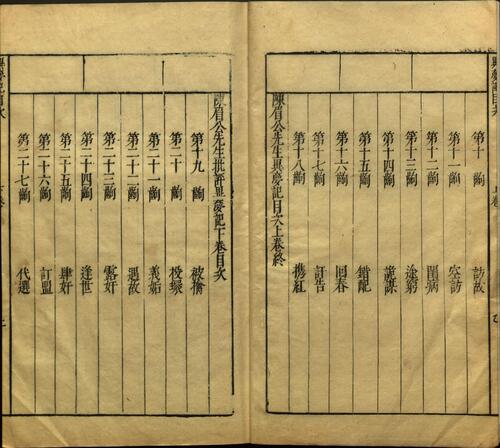 第十齣 訪故
第十一齣 空訪
第十二齣 閨病
第十三齣 途窮
第十四齣 詭謀
第十五齣 錯配
第十六齣 囘春
第十七齣 訂告
第十八齣 携紅
陳眉公先生異夢記目次上卷終
陳眉公先生批評異夢記下卷目次
第十九齣 被擒
第二十齣 投環
第二十一齣 義姤
第二十二齣 遇故
第二十三齣 露奸
第二十四齣 逢世
第二十五齣 肆奸
第二十六齣 訂盟
第二十七齣 代選